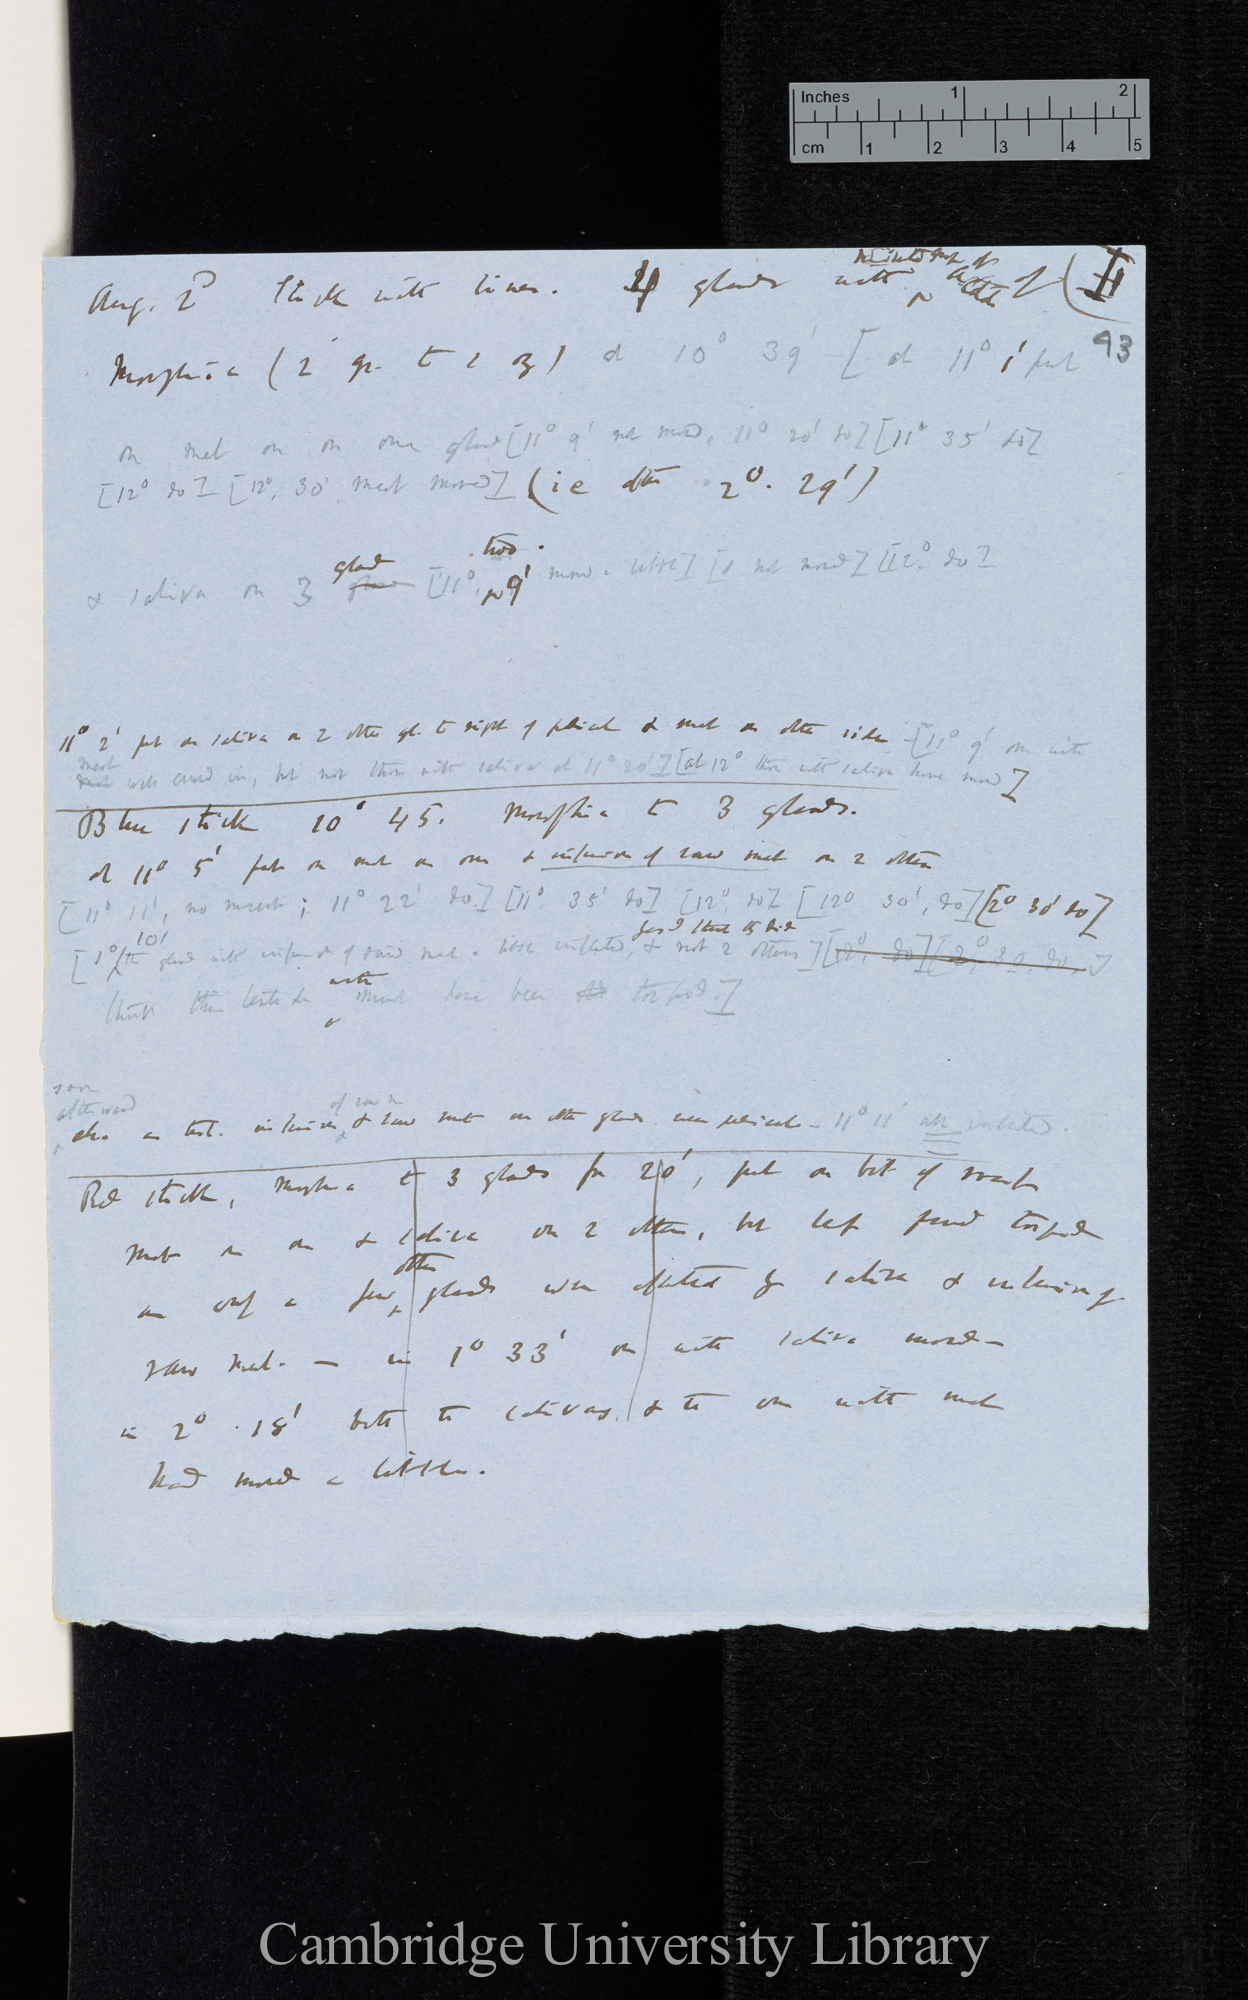 Inches 1 2
cm 1 2 3 4 5
minute drop of
Aug. 2d Stick with lines. 4 glands with Acetate of (II
93
Morphia (2 gr. to 1 oz) at 10° 39' — [at 11° 1' put
on meat on on one gland [11° 9' not moved, 11° 20' do] [11° 35' do]
[12° do] [12°. 30' meat moved] (ie after 2°. 29')
gland two
& saliva on 3 [11°, 9' moved a little] [1 not moved] [12° do]
11° 2' put on saliva on 2 other gl. to right of pedicel & meat on other side [11° 9' one with
meat
well curved in, but not those with saliva at 11° 20'] [at 12° those with saliva have moved]
Blue stick 10° 45. Morphia to 3 glands.
at 11° 5' put on meat on one & infusion of raw meat on 2 others
[11° 11', no movement; 11° 22' do.] [11° 35' do] [12°, do] [12° 30', do] [2° 30' do]
10'
[1° the gland with infusion of raw meat a little inflected, & not 2 others] [2°, do] [2° 30, do.]
with
think this tentacle meat have been torpid.]
soon
afterward
of raw m
also as test. infusion & raw meat on other glands near pedicel — 11° 11' all inflected.
Red stick, Morphia to 3 glands for 20', put on bit of
meat on one & saliva on 2 others, but leaf found torpid
other
as only a few glands were affected by saliva & infusion of
raw meat. — in 1° 33' one with saliva moved —
in 2° . 18' both the salivas & the one with meat
had moved a little.
Cambridge University Library